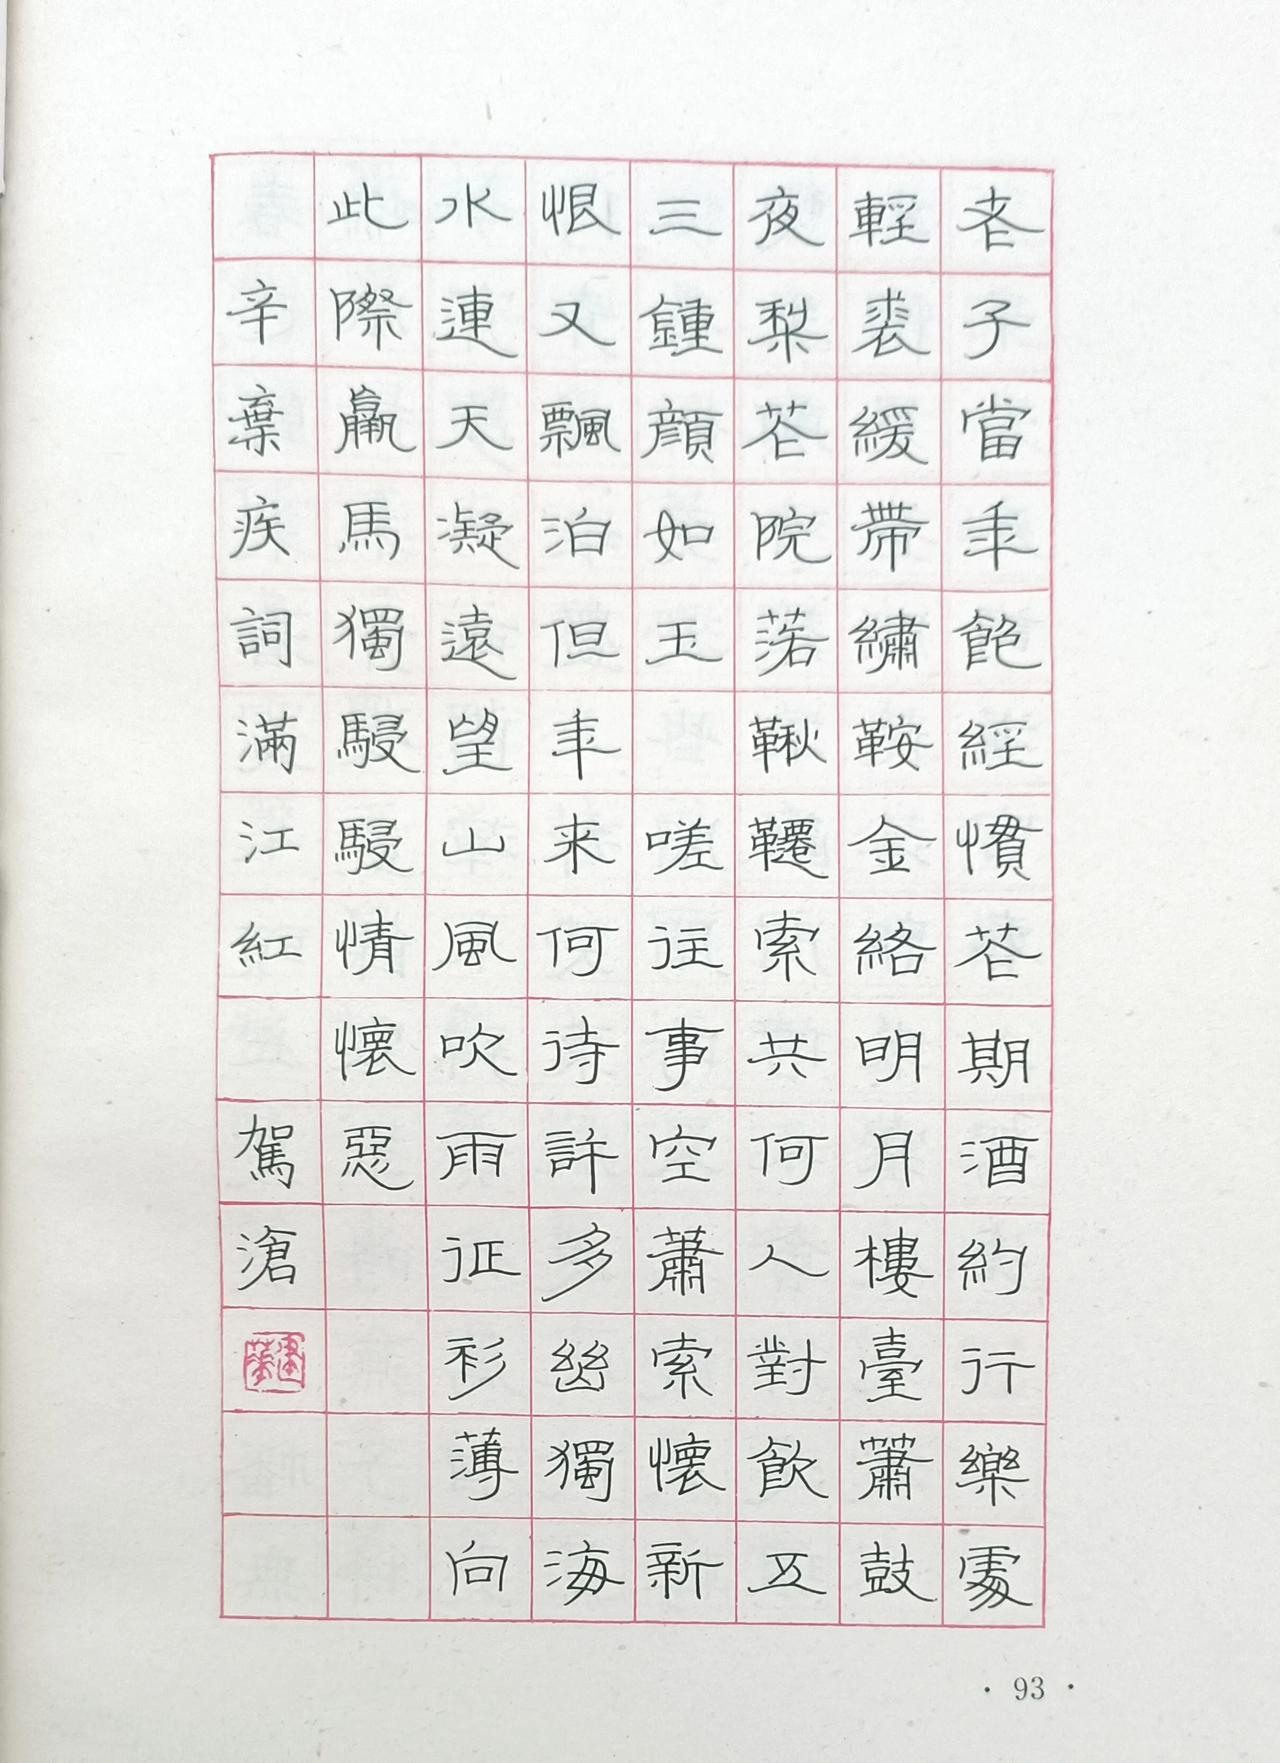 老子當年飽經慣花期酒約行樂處
輕裘緩帶繡鞍金絡明月樓臺簫鼓
夜梨花院落鞦韆索共何人對飲五
三鍾顏如玉嗟往事空蕭索懷新
恨又飄泊但年来何待許多幽獨海
水連天凝遠望山風吹雨征衫薄向
此際羸馬獨駸駸情懷惡
辛棄疾詞滿江紅駕滄
· 93 ·